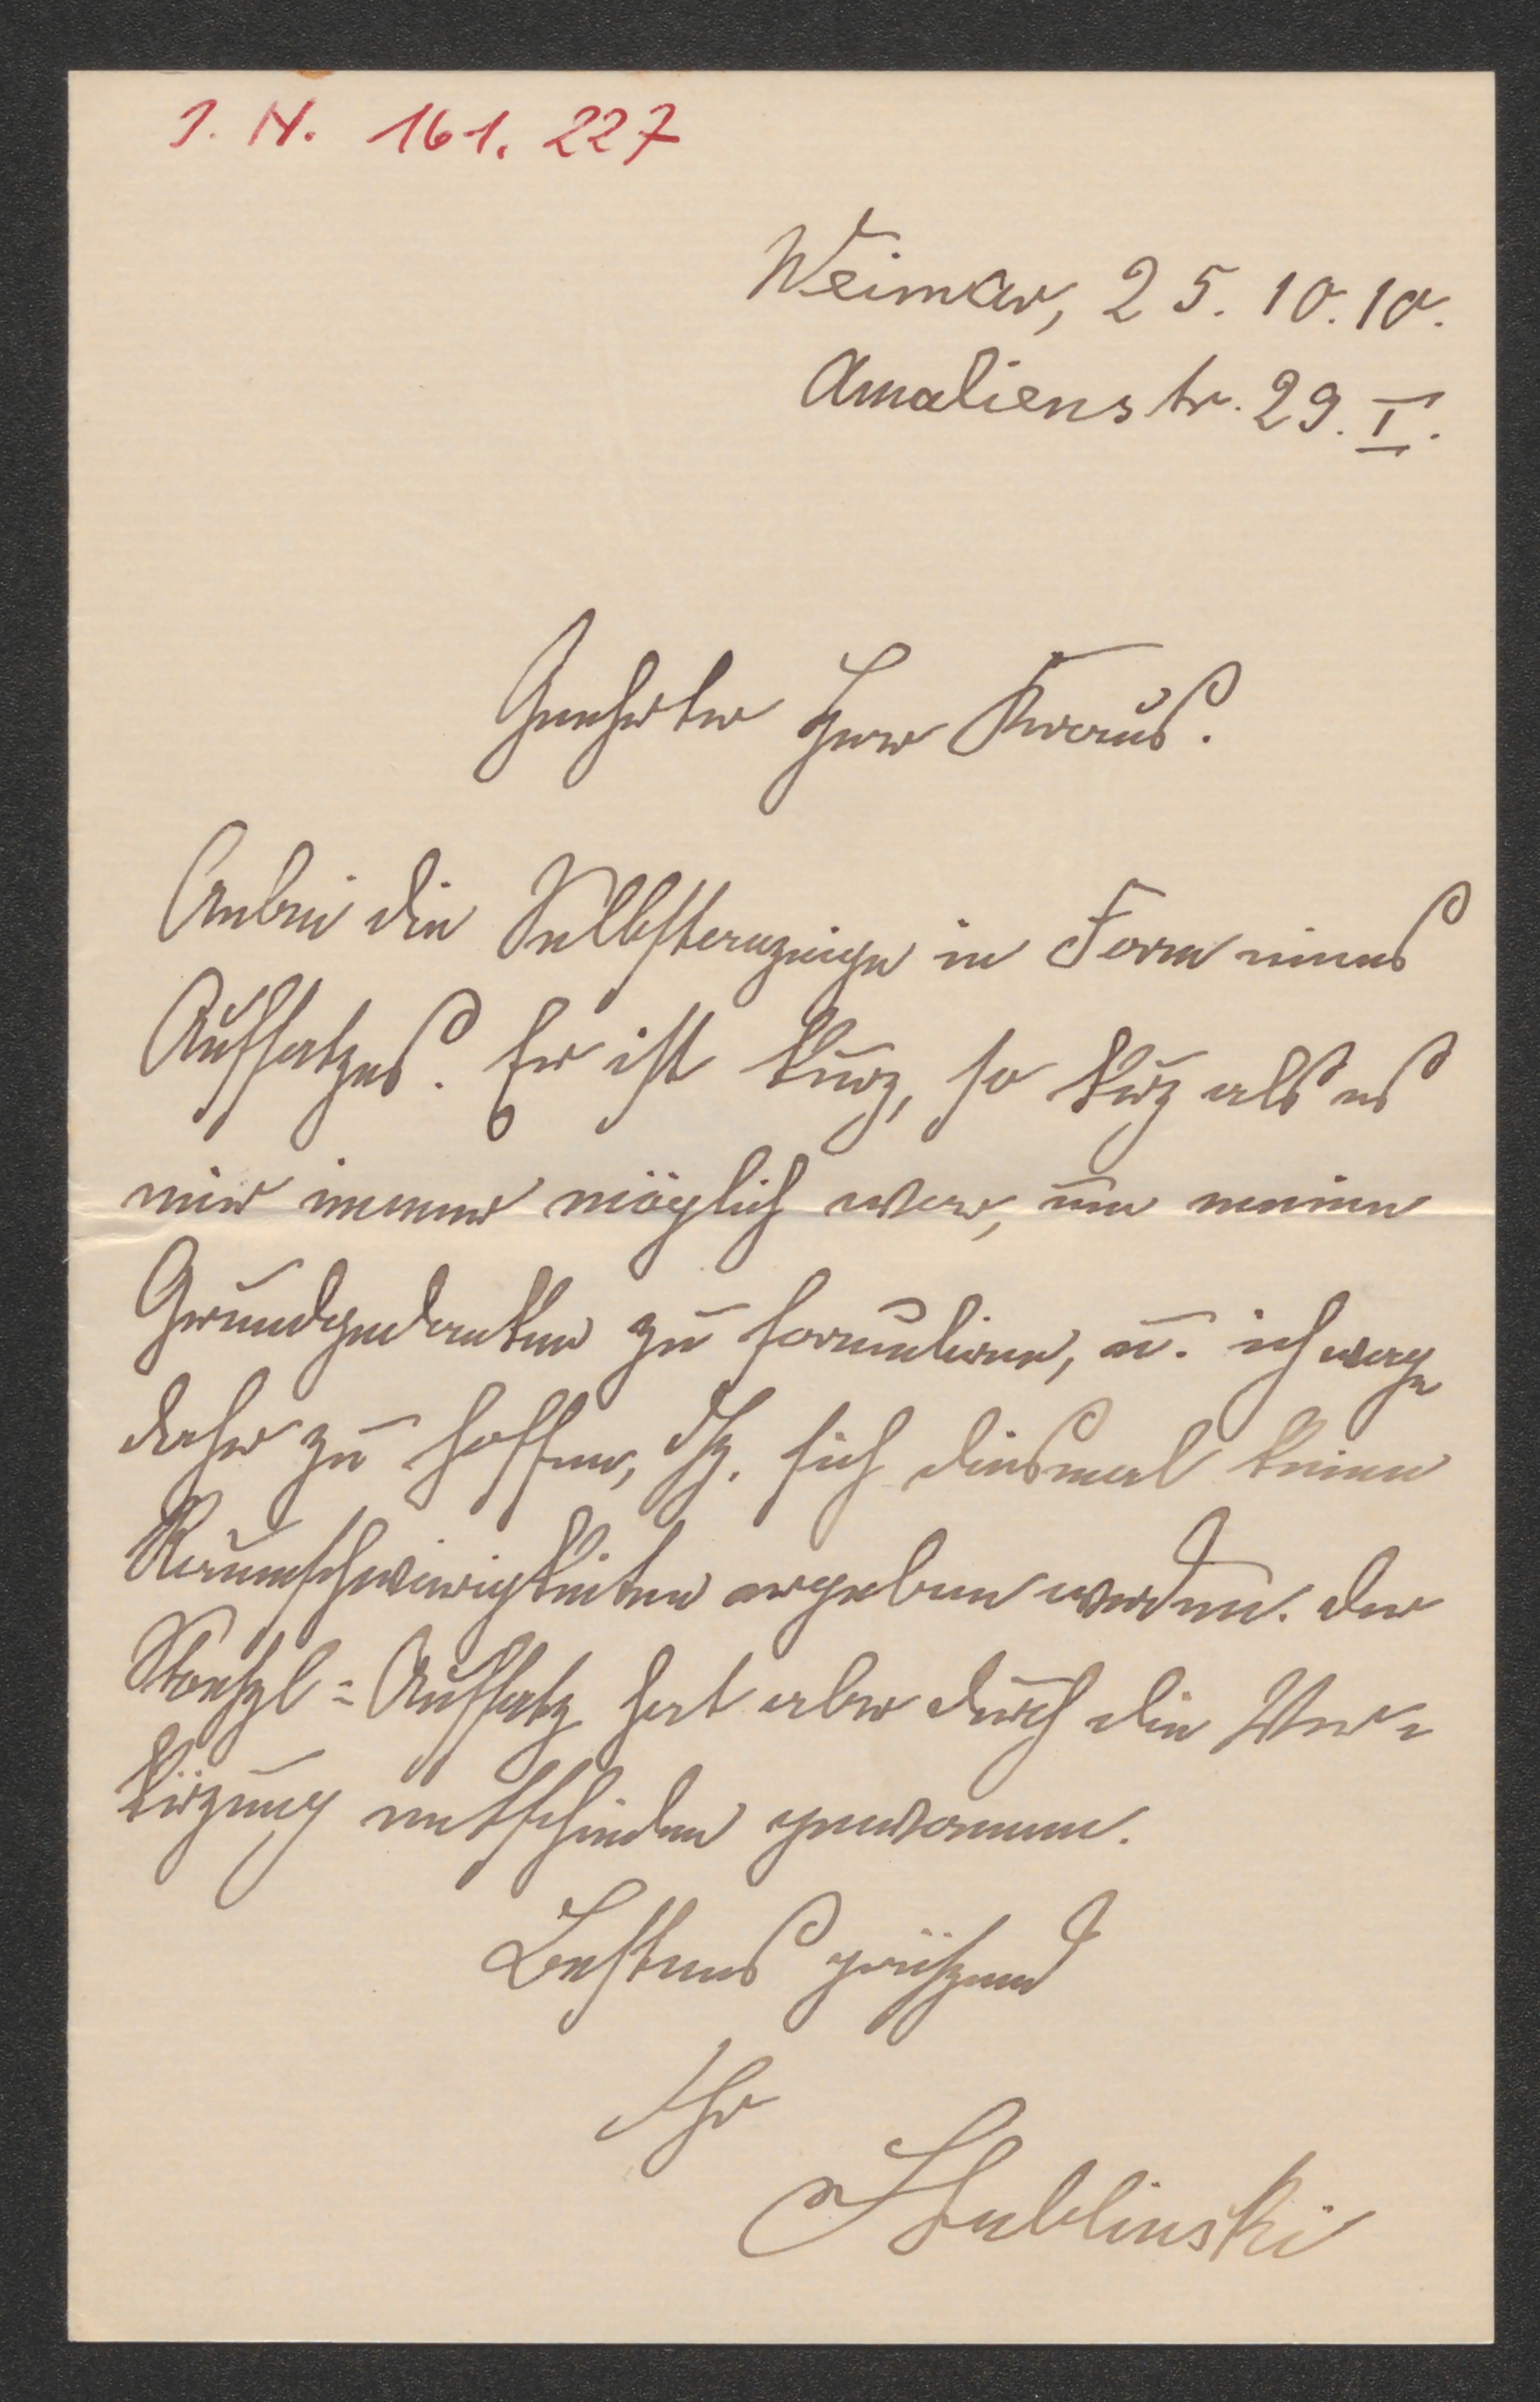 I. N. 161.227
Weimar, 25.10.10.
Amalienstr. 29. I.
Geehrter Herr Kraus.
Anbei die Selbstanzeige in Form eines
Aufsatzes. Er ist kurz, so kurz als es
mir immer möglich war, um meinen
Grundgedanken zu formulieren, u. ich wage
daher zu hoffen, dß. sich diesmal keine
Raumschwierigkeiten ergeben werden. Der
Stoeßl-Aufsatz hat aber durch die Ver-
kürzung entschieden gewonnen.
Bestens grüßend
Ihr
SLublinski